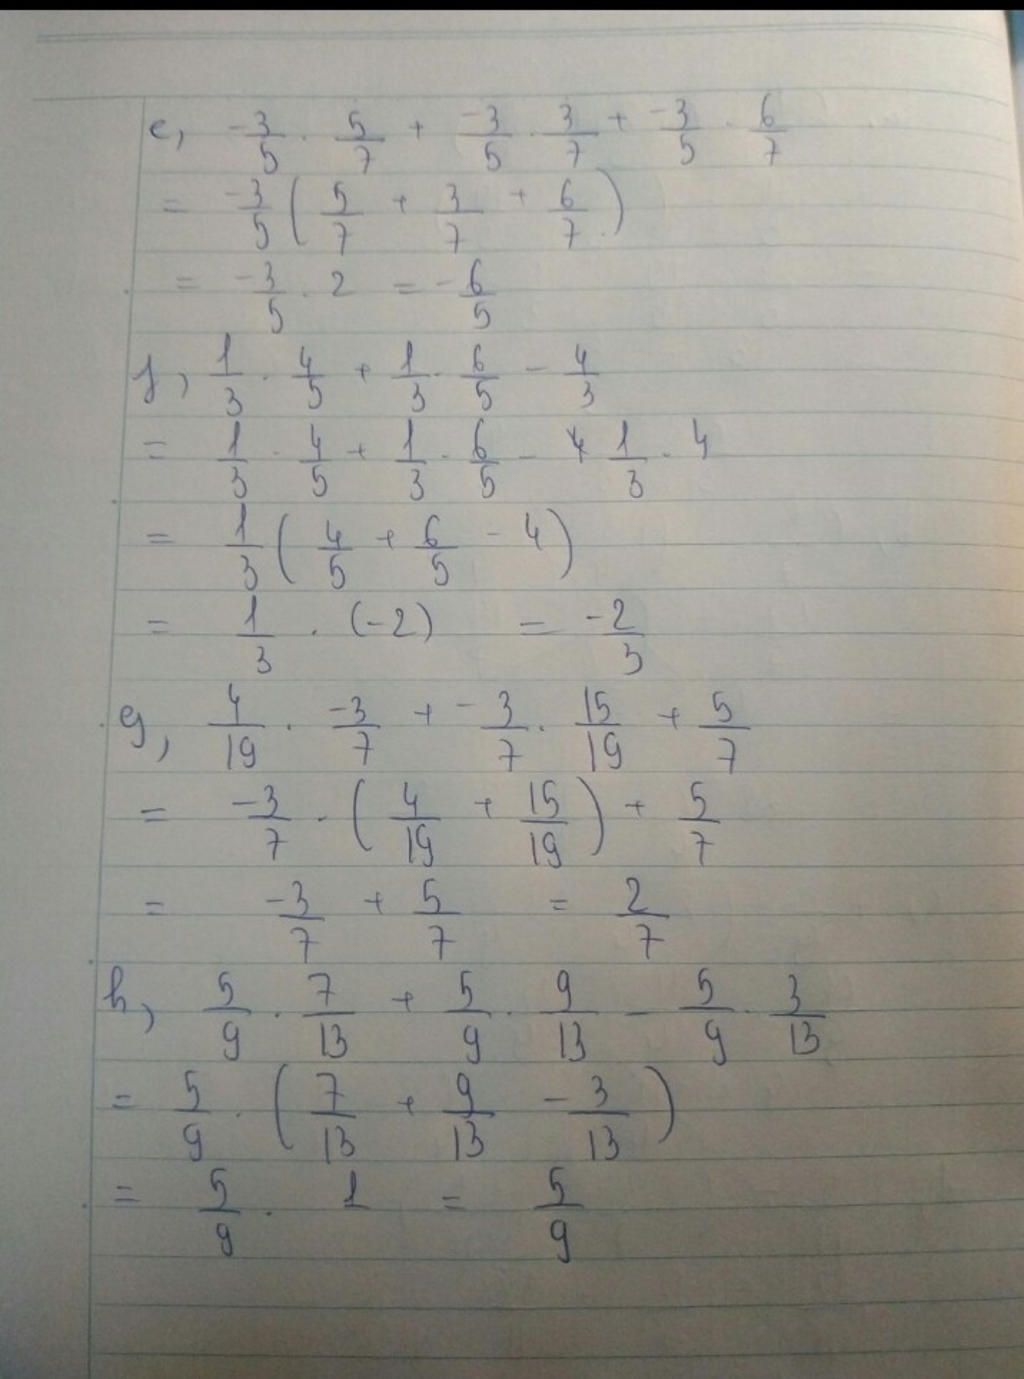 e, -3/5 . 5/7 + -3/5 . 3/7 + -3/5 . 6/7
= -3/5 ( 5/7 + 3/7 + 6/7 )
= -3/5 . 2 = -6/5
f, 1/3 . 4/5 + 1/3 . 6/5 - 4/3
= 1/3 . 4/5 + 1/3 . 6/5 - 1/3 . 4
= 1/3 ( 4/5 + 6/5 - 4 )
= 1/3 . (-2) = -2/3
g, 4/19 . -3/7 + -3/7 . 15/19 + 5/7
= -3/7 . ( 4/19 + 15/19 ) + 5/7
= -3/7 + 5/7 = 2/7
h, 5/9 . 7/13 + 5/9 . 9/13 - 5/9 . 3/13
= 5/9 . ( 7/13 + 9/13 - 3/13 )
= 5/9 . 1 = 5/9